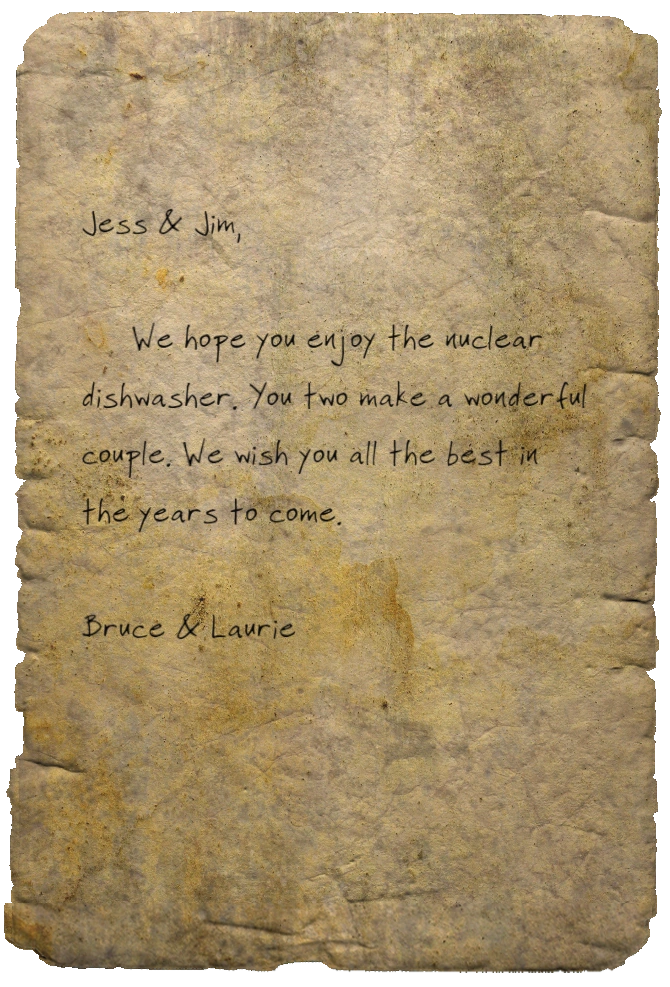 Jess & Jim,
We hope you enjoy the nuclear
dishwasher. You two make a wonderful
couple. We wish you all the best in
the years to come.
Bruce & Laurie